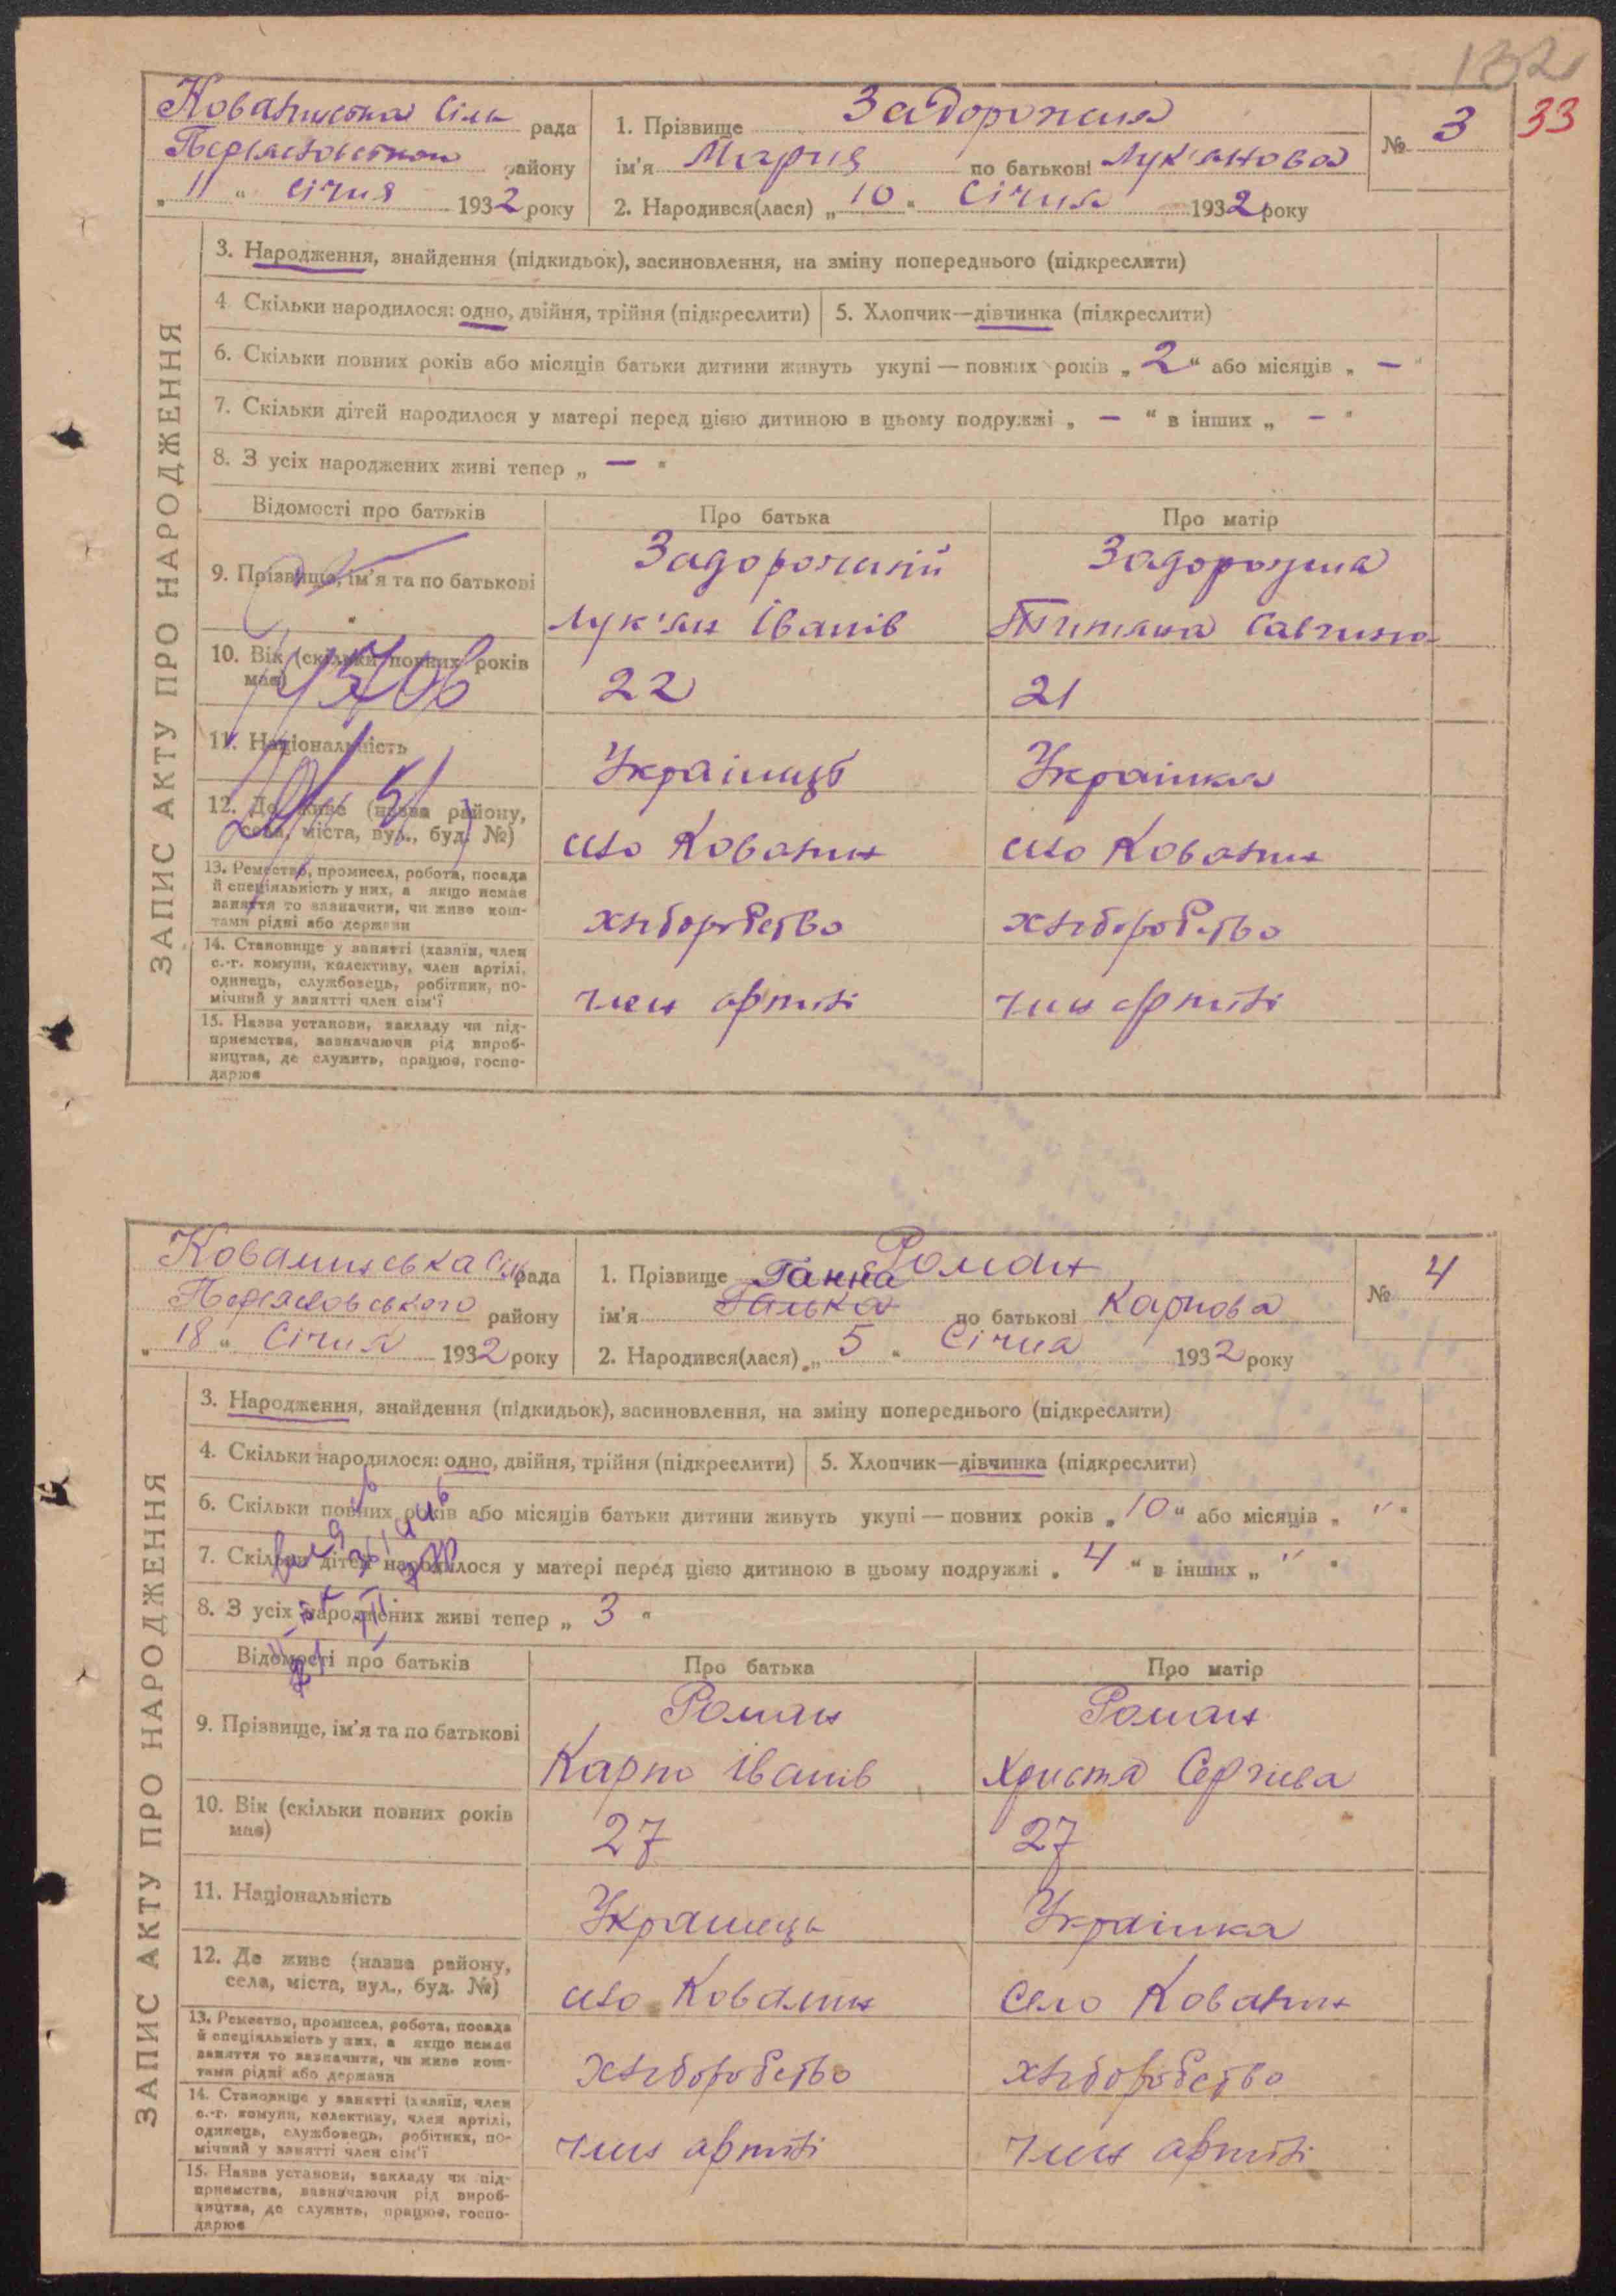 132
33
Ковалинська Сіль рада
Переяславського району
„ 11 “ Січня 1932 року
1. Прізвище Задорожня
ім'я Мария по батькові Лук'янова
2. Народився(лася) „ 10 “ Січня 1932 року
№ 3
ЗАПИС АКТУ ПРО НАРОДЖЕННЯ
3. Народження, знайдення (підкидьок), засиновлення, на зміну попереднього (підкреслити)
4. Скільки народилося: одно, двійня, трійня (підкреслити) 5. Хлопчик—дівчинка (підкреслити)
6. Скільки повних років або місяців батьки дитини живуть укупі — повних років „ 2 “ або місяців „ — “
7. Скільки дітей народилося у матері перед цією дитиною в цьому подружжі „ — “ в інших „ — “
8. З усіх народжених живі тепер „ — “
Відомості про батьків Про батька Про матір
9. Прізвище, ім'я та по батькові
Задорожній
Лук'ян Іванів
Задорожна
Титяна Савчина
10. Вік (скільки повних років
має)
22 21
11. Національність
Українець Українка
12. Де живе (назва району,
села, міста, вул., буд. №)
село Ковалин село Ковалин
13. Ремество, промисел, робота, посада
й спеціяльність у них, а якщо немає
заняття то зазначити, чи живе кош-
тами рідні або держави
хліборобство хліборобство
14. Становище у занятті (хазяїн, член
с.-г. комуни, колективу, член артілі,
одинець, службовець, робітник, по-
мічний у занятті член сім'ї
член артілі член артілі
15. Назва установи, закладу чи під-
приємства, зазначаючи рід вироб-
ництва, де служить, працює, госпо-
дарює
Ковалинська Сіль рада
Переяславського району
„ 18 “ Січня 1932 року
1. Прізвище Роман
Ганна
ім'я Галька по батькові Карпова
2. Народився(лася) „ 5 “ Січня 1932 року
№ 4
ЗАПИС АКТУ ПРО НАРОДЖЕННЯ
3. Народження, знайдення (підкидьок), засиновлення, на зміну попереднього (підкреслити)
4. Скільки народилося: одно, двійня, трійня (підкреслити) 5. Хлопчик—дівчинка (підкреслити)
6. Скільки повних років або місяців батьки дитини живуть укупі — повних років „ 10 “ або місяців „ " “
7. Скільки дітей народилося у матері перед цією дитиною в цьому подружжі „ 4 “ в інших „ " “
8. З усіх народжених живі тепер „ 3 “
Відомості про батьків Про батька Про матір
9. Прізвище, ім'я та по батькові
Роман
Карпо Іванів
Роман
Христя Сергієва
10. Вік (скільки повних років
має)
27 27
11. Національність
Украінець Українка
12. Де живе (назва району,
села, міста, вул., буд. №)
село Ковалин Село Ковалин
13. Ремество, промисел, робота, посада
й спеціяльність у них, а якщо немає
заняття то зазначити, чи живе кош-
тами рідні або держави
хліборобство хліборобство
14. Становище у занятті (хазяїн, член
с.-г. комуни, колективу, член артілі,
одинець, службовець, робітник, по-
мічний у занятті член сім'ї
член артілі член артілі
15. Назва установи, закладу чи під-
приємства, зазначаючи рід вироб-
ництва, де служить, працює, госпо-
дарює